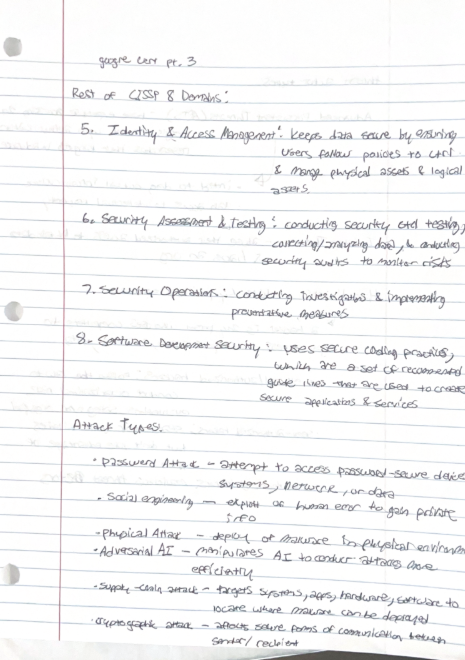 google cert pt. 3
Rest of CISSP 8 Domains:
5. Identity & Access Management: keeps data secure by ensuring
users follow policies to ctrl
& manage physical assets & logical
assets.
6. Security Assessment & Testing: conducting security ctrl testing,
collecting/analyzing data, & conducting
security audits to monitor risks
7. Security Operations: conducting investigations & implementing
preventative measures
8. Software Development Security: uses secure coding practices,
which are a set of recommended
guide lines that are used to create
secure applications & services
Attack Types:
• Password Attack – attempt to access password-secure devices
systems, network, or data
• Social engineering – exploit of human error to gain private
info
• Physical Attack – deploy of malware in physical environm
• Adversarial AI – manipulates AI to conduct attacks more
efficiently
• Supply-chain attack – targets systems, apps, hardware, software to
locate where malware can be deployed
• Cryptographic attack – affects secure forms of communication between
sender/recipient